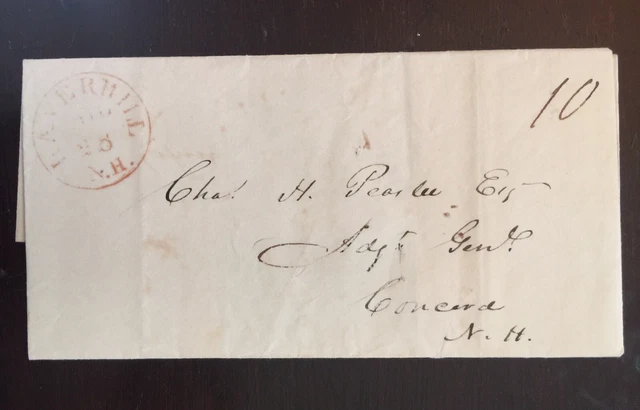 HAVERHILL
N.H.
10
Chaˢ. H. Peaslee Esq
Adjᵗ Genˡ.
Concord
N. H.